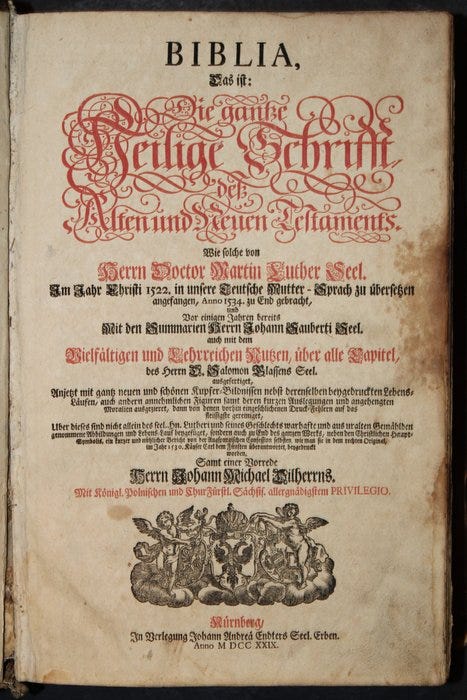 BIBLIA,
Das ist:
Die gantze
Heilige Schrifft,
deß
Alten und Neuen Testaments.
Wie solche von
Herrn Doctor Martin Luther Seel.
Im Jahr Christi 1522. in unsere Teutsche Mutter-Sprach zu übersetzen
angefangen, Anno 1534. zu End gebracht,
und
Vor einigen Jahren bereits
Mit den Summarien Herrn Johann Sauberti Seel.
auch mit dem
Vielfältigen und Lehrreichen Nutzen, über alle Capitel,
des Herrn D. Salomon Glassens Seel.
ausgefertiget,
Anjetzt mit gantz neuen und schönen Kupfer-Bildnissen nebst derenselben beygedruckten Lebens-
Läufen, auch andern annehmlichen Figuren samt deren kurzen Auslegungen und angehengten
Moralien ausgezieret, dann von denen vorhin eingeschlichenen Druck-Fehlern auf das
fleissigste gereiniget,
Über dieses sind nicht allein des seel. Hn. Lutheri und seines Geschlechts warhafte und aus uralten Gemählden
genommene Abbildungen und Lebens-Lauf beygefüget, sondern auch zu End des gantzen Werks, neben den Christlichen Haupt-
Symbolis, ein kurzer und nützlicher Bericht von der Augspurgischen Confession selbsten, wie man sie in dem rechten Original,
im Jahr 1530. Käyser Carl dem Fünften überantwortet, beygedruckt
worden.
Samt einer Vorrede
Herrn Johann Michael Dilherrns.
Mit Königl. Polnischen und ChurFürstl. Sächsis. allergnädigstem PRIVILEGIO.
Nürnberg,
In Verlegung Johann Andreä Endters Seel. Erben.
Anno M DCC XXIX.